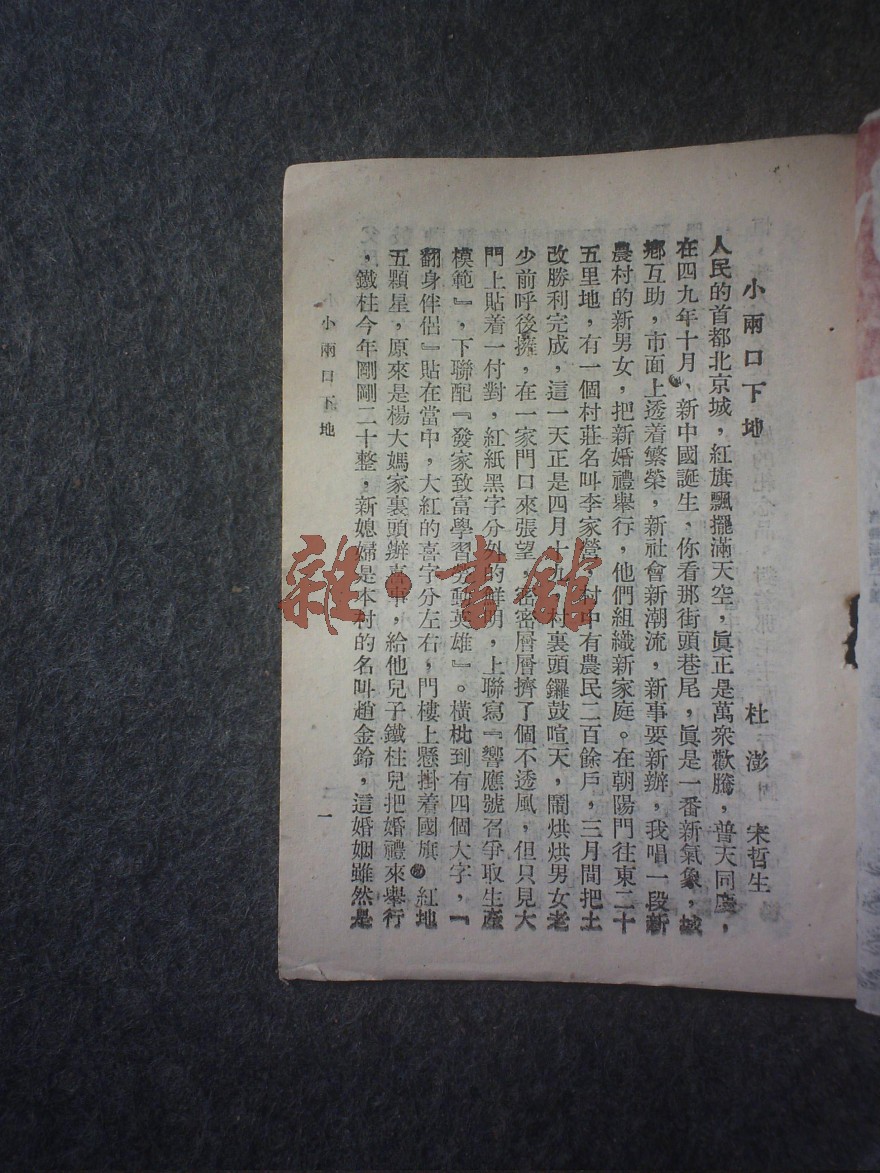 小兩口下地
杜澎 宋哲生
人民的首都北京城，紅旗飄擺滿天空，眞正是萬衆歡騰，普天同慶，
在四九年十月，新中國誕生，你看那街頭巷尾，眞是一番新氣象，城
鄉互助，市面上透着繁榮，新社會新潮流，新事要新辦，我唱一段新
農村的新男女，把新婚禮舉行，他們組織新家庭。在朝陽門往東二十
五里地，有一個村莊名叫李家營，村中有農民二百餘戶，三月間把土
改勝利完成，這一天正是四月十九，村裏頭鑼鼓喧天，鬧烘烘男女老
少前呼後擁，在一家門口來張望，密密層層擠了個不透風，但只見大
門上貼着一付對，紅紙黑字分外的鮮明，上聯寫『響應號召爭取生產
模範』，下聯配『發家致富學習勞動英雄』。橫枇到有四個大字，『
翻身伴侶』貼在當中，大紅的喜字分左右，門樓上懸掛着國旗，紅地
五顆星，原來是楊大媽家裏頭辦喜事，給他兒子鐵柱兒把婚禮來舉行
，鐵柱今年剛剛二十整，新媳婦是本村的名叫趙金鈴，這婚姻雖然是
小兩口下地
一
雜·書館